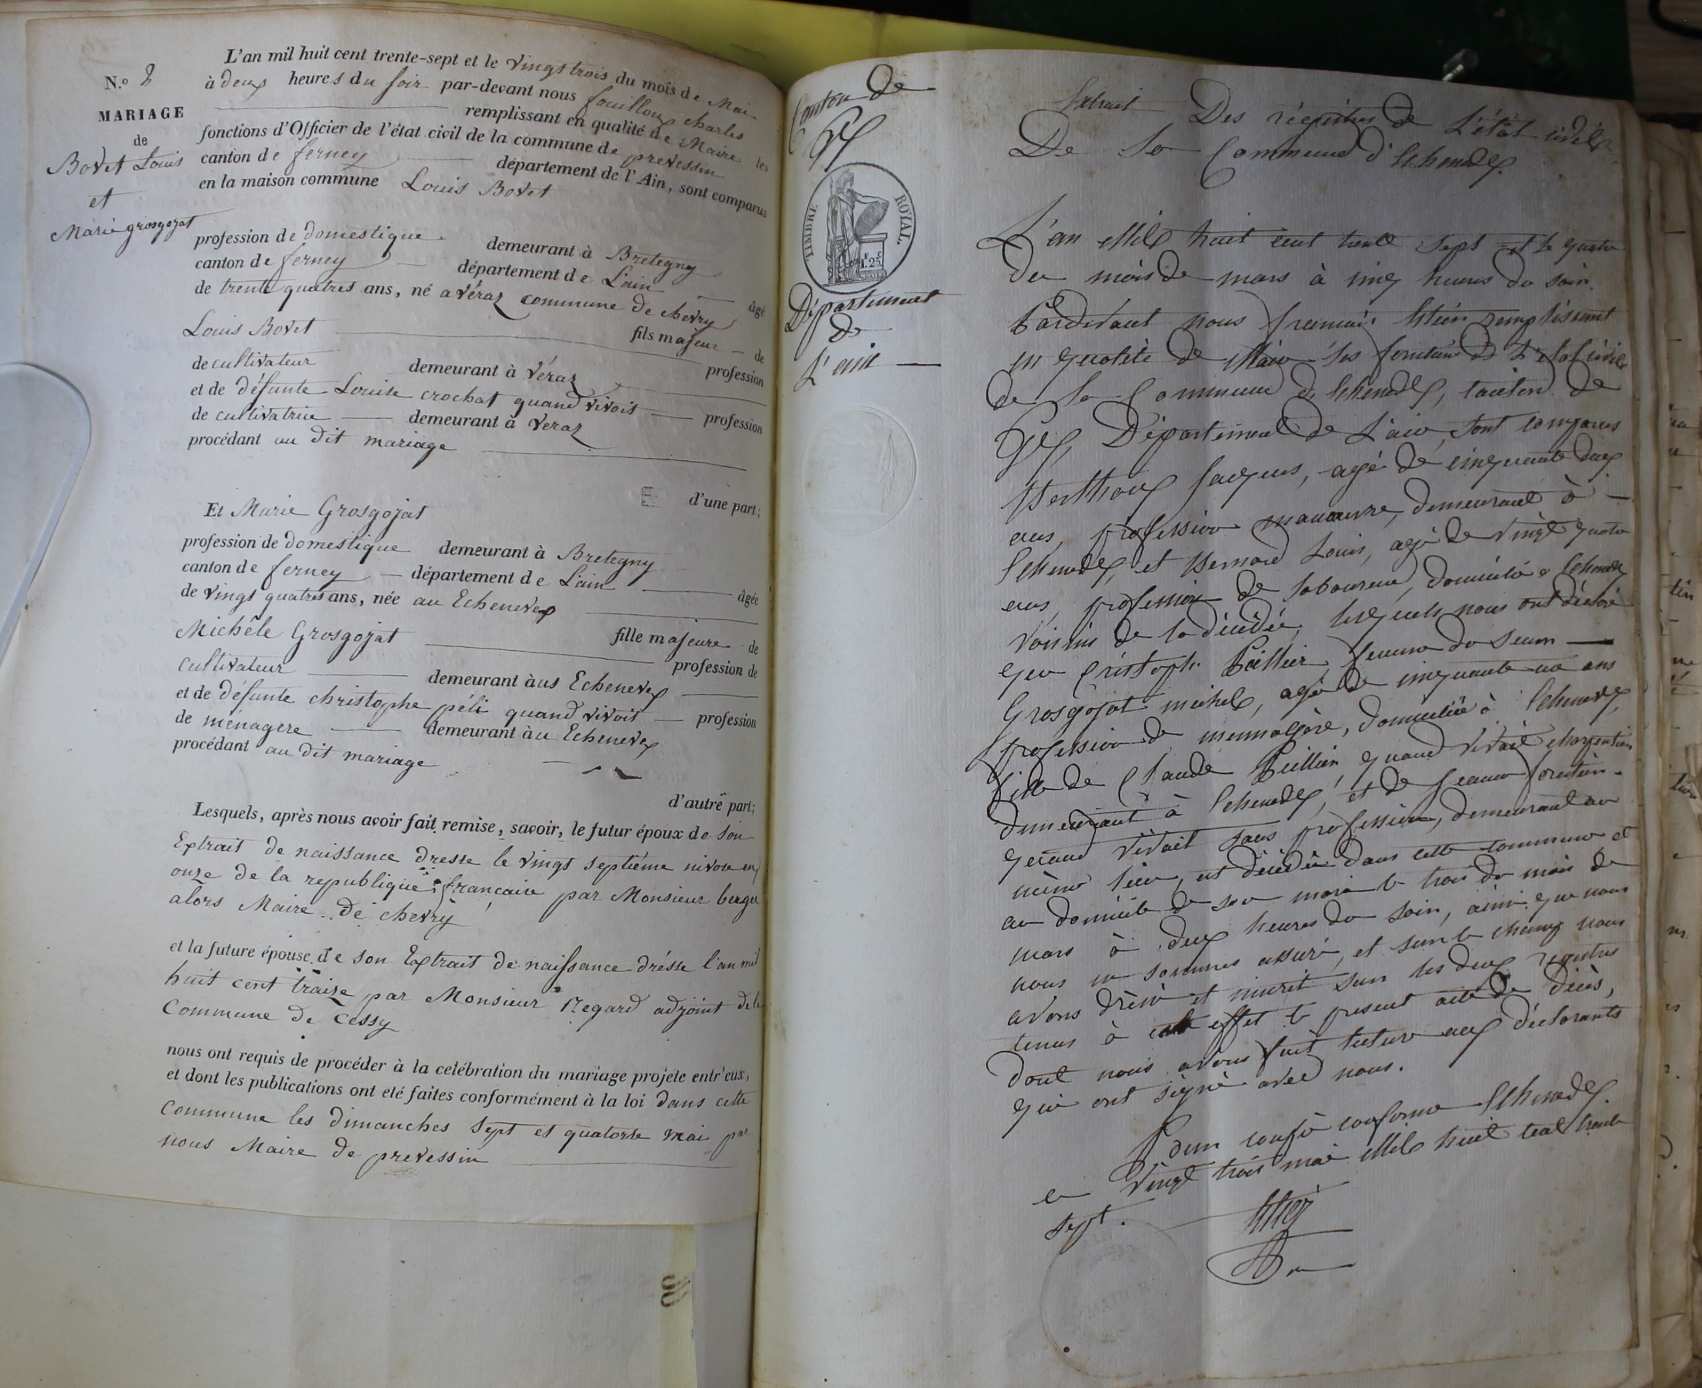 N.º 8
MARIAGE
de
Bovet Louis
et
Marie grosgojat
L'an mil huit cent trente-sept et le vingstrois du mois de Mai
à deux heures du soir par-devant nous fouilloux charles
remplissant en qualité de Maire les
fonctions d'Officier de l'état civil de la commune de prevessin
canton de ferney département de l'Ain, sont comparus
en la maison commune Louis Bovet
profession de domestique demeurant à Bretegny
canton de ferney département de L'ain âgé
de trente quatres ans, né a véraz commune de chevry
Louis Bovet fils majeur de
profession
de cultivateur demeurant à véraz
et de défunte Louise crochat quand vivoit profession
de cultivatrice demeurant à veraz
procédant au dit mariage
d'une part;
Et Marie Grosgojat
profession de domestique demeurant à Bretegny
canton de ferney département de L'ain âgée
de vings quatres ans, née au Echenevex
Michéle Grosgojat fille majeure de
profession de
cultivateur demeurant àus Echenevex
et de défunte christophe péli quand vivoit profession
de menagere demeurant àu Echenevex
procédant au dit mariage
d'autre part;
Lesquels, après nous avoir fait remise, savoir, le futur époux de son
Extrait de naissance dresse le vings septiéme nivose an
onze de la republique française par Monsieur berger
alors Maire de chevry
et la future épouse de son Extrait de naissance drésse l'an mil
huit cent traize par Monsieur Regard adjoint de la
Commune de Cessy
nous ont requis de procéder à la celébration du mariage projeté entr'eux,
et dont les publications ont eté faites conformément à la loi dans cette
Commune les dimanches sept et quatorse mai par
nous Maire de prevessin
Canton de
Gex
TIMBRE ROYAL.
1f 25c
Département
de
L'ain
Extrait Des régistres de L'état civile
De La Commune d'Echenevex.
L'an Mil huit cent trente sept et le quatre
du mois de mars à cinq heures du soir
Pardevant nous remplissant
en qualité de Maire les fonctions de L'état civile
de la Commune d'Echenevex, canton de
Gex, Département de L'ain, sont comparus
Berthoux Jacques, agé de cinquante deux
ans, profession manœuvre, demeurant à
Echenevex, et Bernard Louis, agé de vingt quatre
ans, profession de laboureur, domicilié à Echenevex
voisins de la décédée, lesquels nous ont déclaré
que Cristoph. Pellier femme du Sieur
Grosgojat michel, agée de cinquante un ans
profession de mennagère, domiciliée à Echenevex
fille de Claude Pellier quand vivait charpentier
demeurant à Echenevex, et de Jeanne
quand vivait sans profession, demeurant au
même lieu, est décédée dans cette commune et
au domicile de son mari le trois du mois de
mars à deux heures du soir, ainsi que nous
nous en sommes assuré, et sur le champ nous
avons dréssé et inscrit sur les deux registres
tenus à cet effet le present acte de décès,
dont nous avons fait lecture aux déclarants
qui ont signé avec nous.
Pour copie conforme Echenevex.
le vingt trois mai Mil huit cent trente
sept.